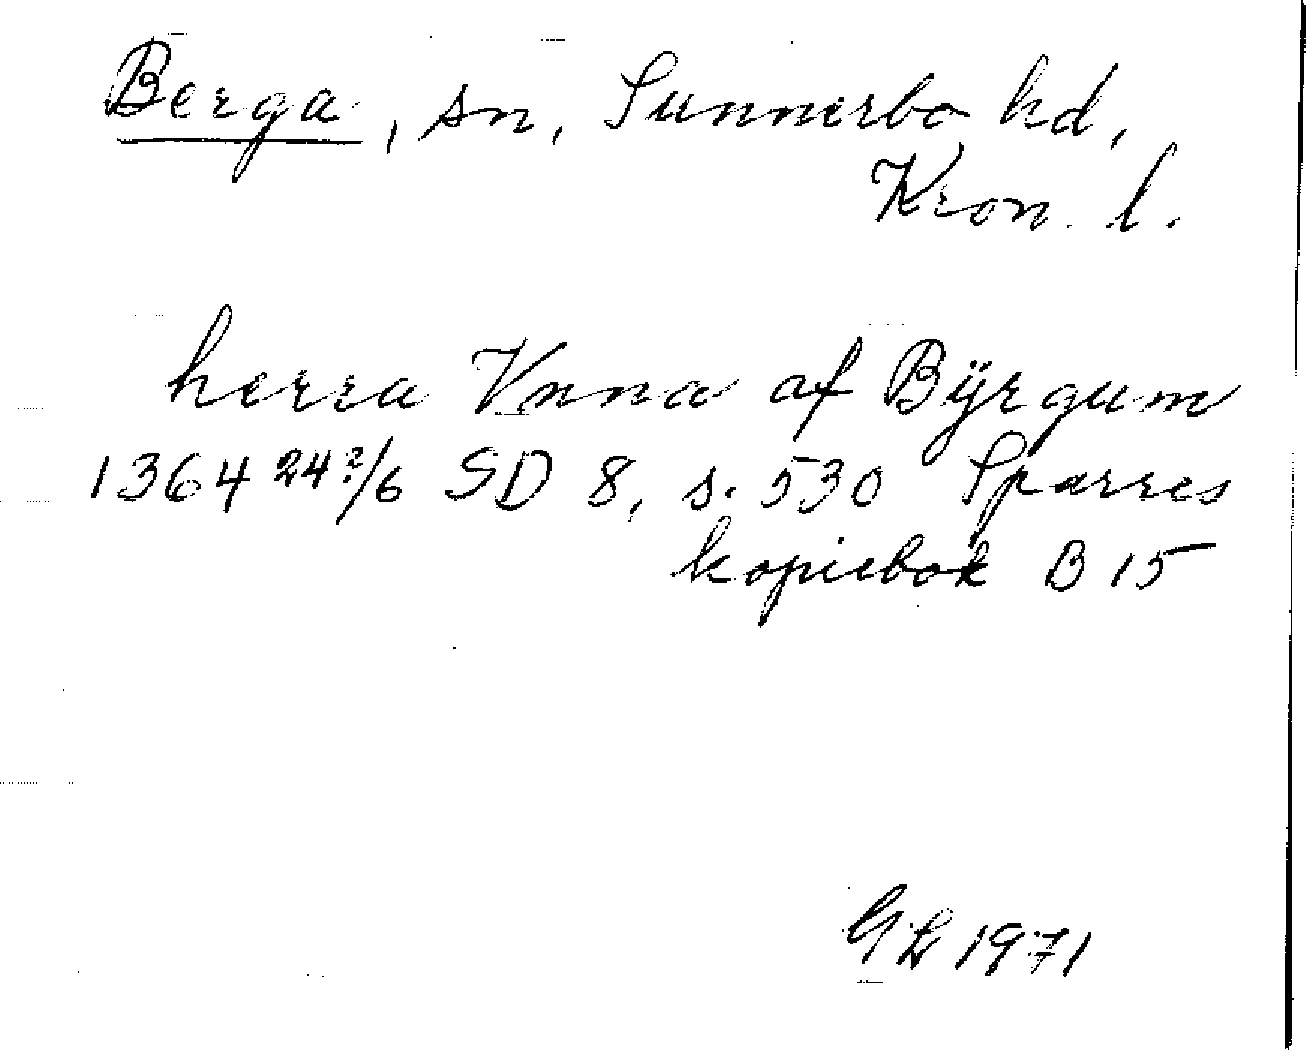 Berga, sn, Sunnerbo hd,
Kron. l.
herra Vnna af Bÿrgum
1364 24?/6 SD 8, s. 530 Sparres
kopiebok B 15
GL 1971